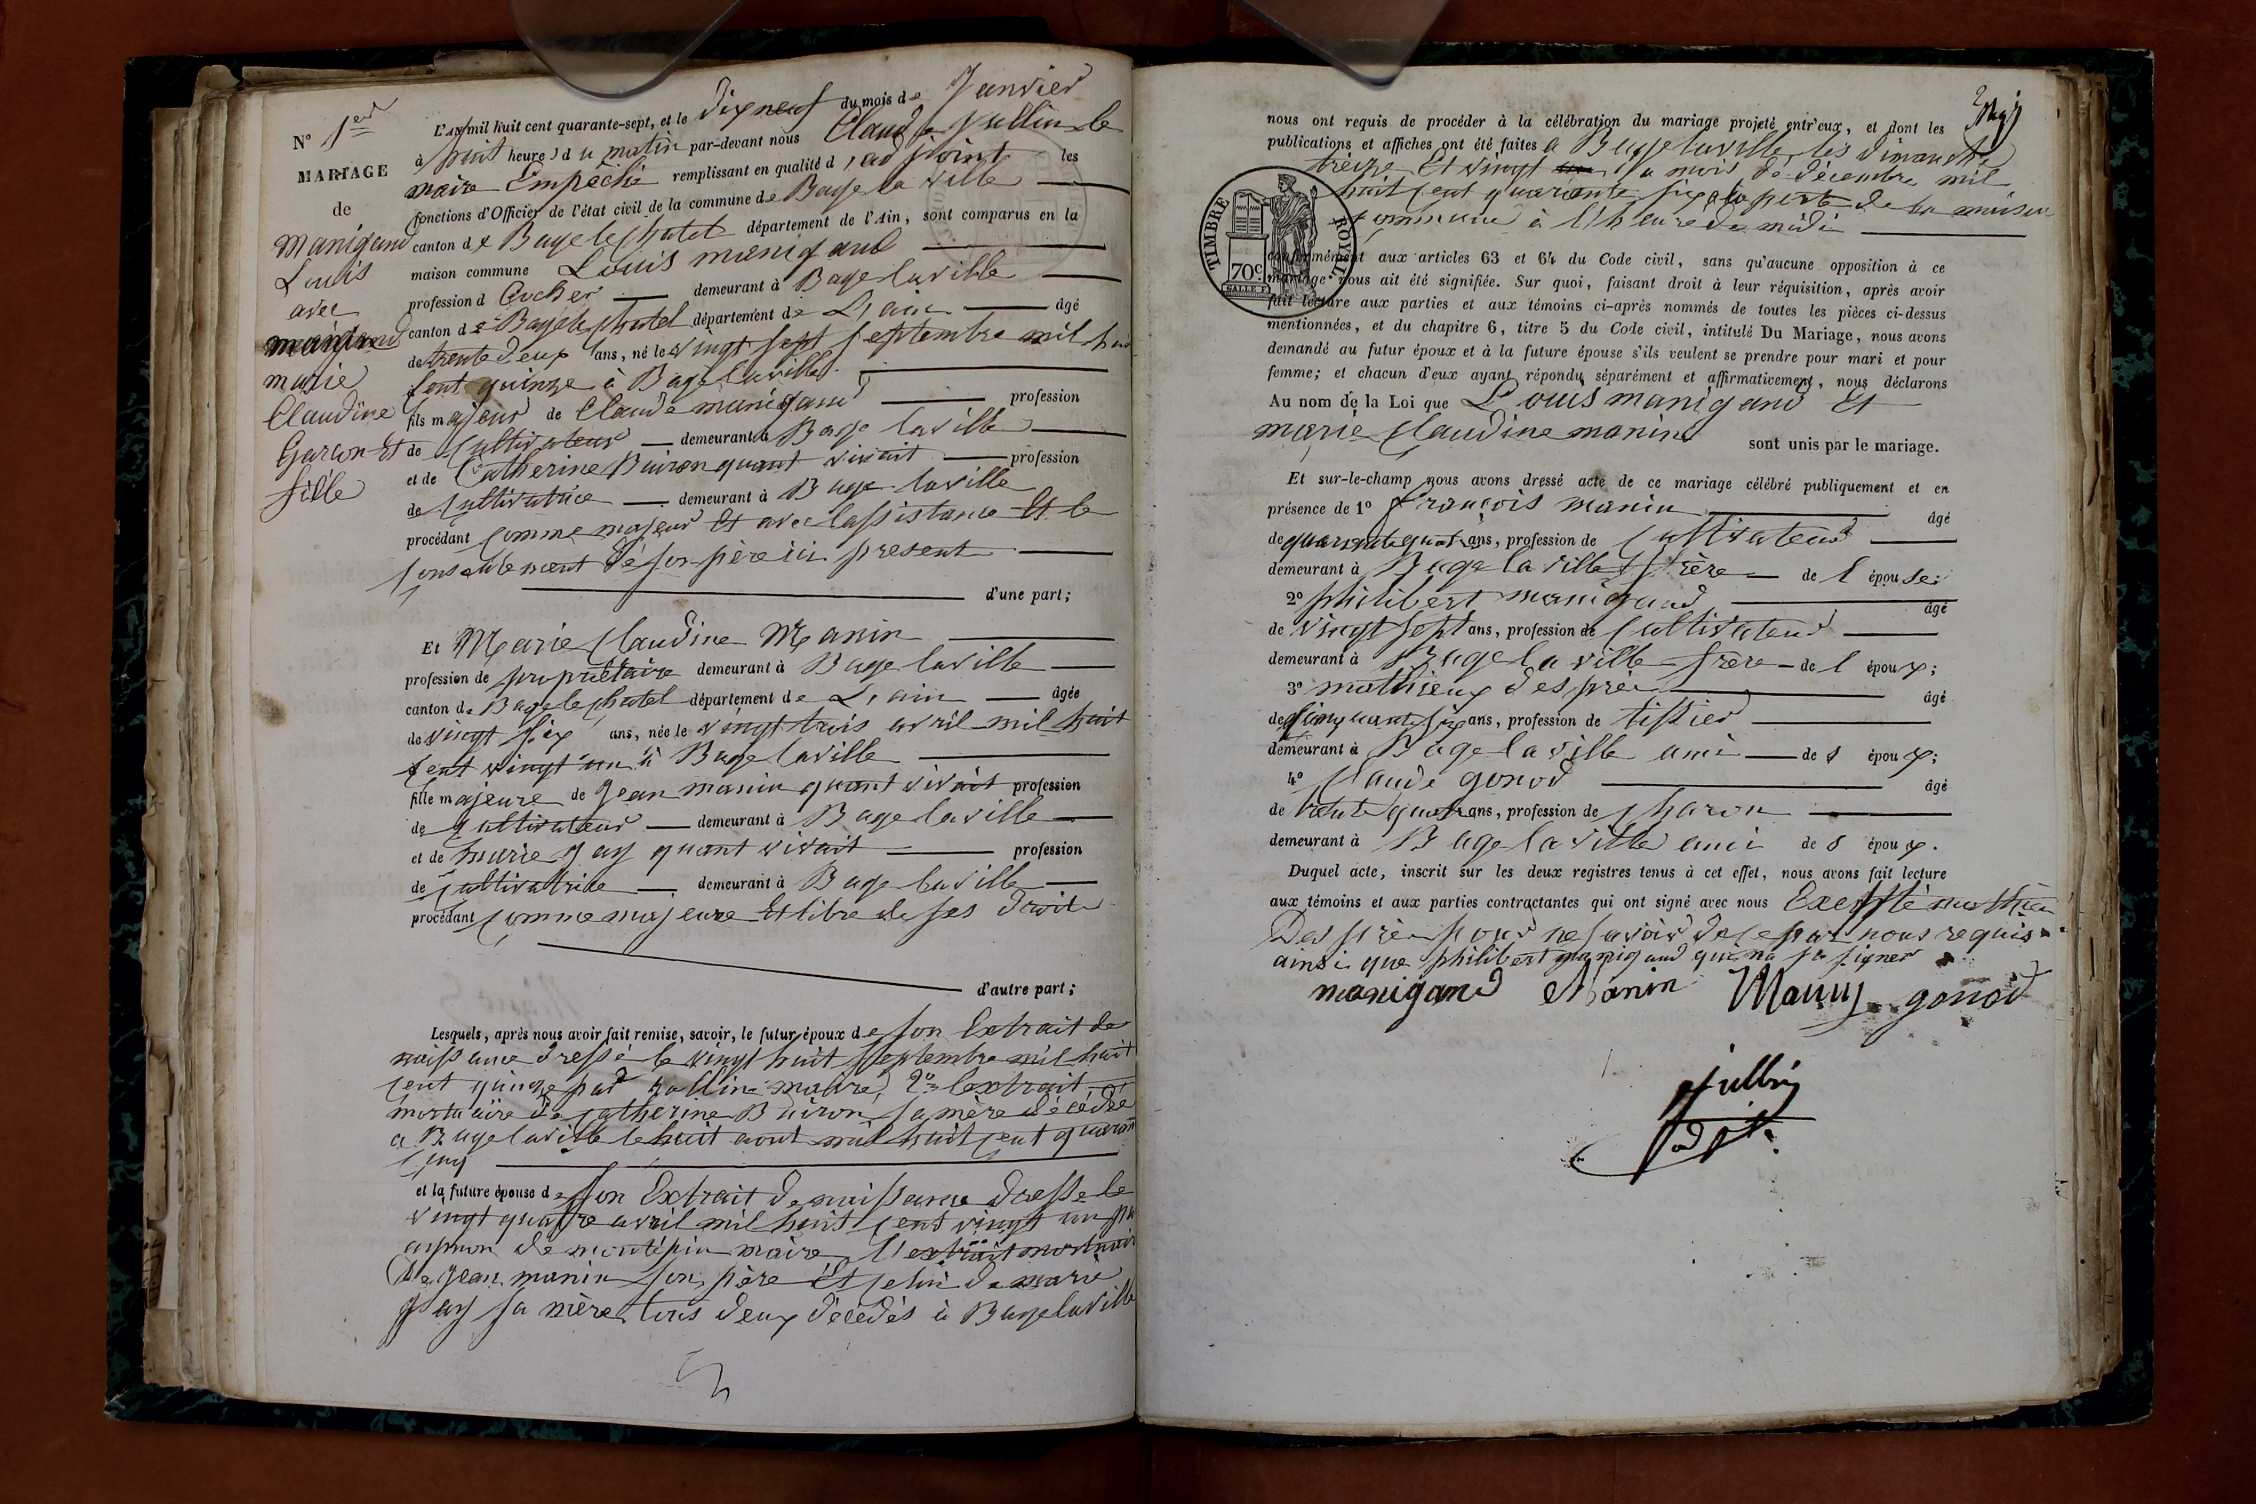 N° 1er
MARIAGE
de
Manigand
Louis
avec
manin
marie
Claudine
Garcon Et
fille
L'an mil huit cent quarante-sept, et le dix neuf du mois de Janvier
à huit heures du matin par-devant nous Claude Jullin le
maire Empeché remplissant en qualité d'adjoint les
fonctions d'Officier de l'état civil de la commune de Bage la ville
canton de Bage le chatel département de l'Ain, sont comparus en la
maison commune Louis manigand
profession d Cocher demeurant à Bage laville
canton de Bage le chatel département de L'ain âgé
de trente deux ans, né le vingt sept septembre mil huit
cent quinze à Bage laville
fils majeur de Claude manigand profession
de Cultivateur demeurant à Bage laville
et de Catherine Buiron quant vivait profession
de Cultivatrice demeurant à Bage laville
procédant comme majeur Et avec lassistance Et le
consentement de son père ici present
d'une part;
Et Marie Claudine Manin
profession de propriétaire demeurant à Bage laville
canton de Bage le chatel département de L'ain âgée
de vingt six ans, née le vingt trois avril mil huit
cent vingt un à Bage laville
fille majeure de Jean manin quant vivait profession
de Cultivateur demeurant à Bage laville
et de marie gay quant vivait profession
de Cultivatrice demeurant à Bage laville
procédant comme majeure Et libre de ses droits
d'autre part;
Lesquels, après nous avoir fait remise, savoir, le futur époux de son Extrait de
naissance dressé le vingt huit septembre mil huit
cent quinze par maire, 2° lextrait
mortuaire de Catherine Buiron sa mère décédée
a Bage laville le huit aout mil huit cent quarante
cinq
et la future épouse de son Extrait de naissance dresse le
vingt quatre avril mil huit cent vingt un par
de montépin maire, l'extrait mortuaire
de Jean manin son père Et celui de marie
gay sa mère tous deux décédés à Bage laville
2
nous ont requis de procéder à la célébration du mariage projeté entr'eux, et dont les
publications et affiches ont été faites a Bage laville les dimanche
treize Et vingt du mois de décembre mil
huit cent quarante six a la porte de la maison
commune à l'heure de midi
TIMBRE ROYAL
70c
conformément aux articles 63 et 64 du Code civil, sans qu'aucune opposition à ce
mariage nous ait été signifiée. Sur quoi, faisant droit à leur réquisition, après avoir
fait lecture aux parties et aux témoins ci-après nommés de toutes les pièces ci-dessus
mentionnées, et du chapitre 6, titre 5 du Code civil, intitulé Du Mariage, nous avons
demandé au futur époux et à la future épouse s'ils veulent se prendre pour mari et pour
femme; et chacun d'eux ayant répondu séparément et affirmativement, nous déclarons
Au nom de la Loi que Louis manigand Et
marie Claudine manin sont unis par le mariage.
Et sur-le-champ nous avons dressé acte de ce mariage célébré publiquement et en
présence de 1° François manin âgé
de quarante quatre ans, profession de Cultivateur
demeurant à Bage la ville frère de l épouse;
2° philibert manigand âgé
de vingt sept ans, profession de Cultivateur
demeurant à Bage la ville frère de l époux;
3° mathieux desprès âgé
de Cinquante six ans, profession de tissier
demeurant à Bage la ville ami de l époux;
4° Claude gonod âgé
de trente quatre ans, profession de Charon
demeurant à Bage la ville ami de l époux.
Duquel acte, inscrit sur les deux registres tenus à cet effet, nous avons fait lecture
aux témoins et aux parties contractantes qui ont signé avec nous Excepté mathieu
Desprès pour ne savoir de ce par nous requis
ainsi que philibert manigand qui na su signer
manigand Manin Manin gonod
Jullin
adjt